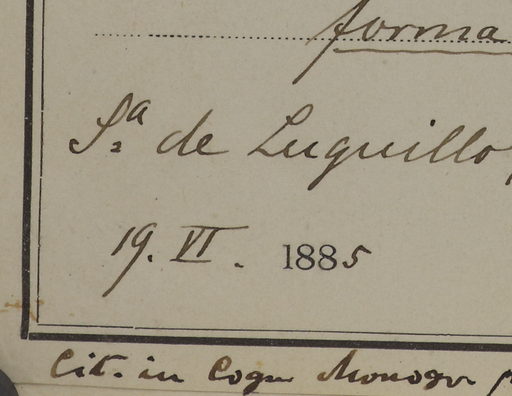 forma
Sª de Luquillo,
19. VI. 1885
Cit. in Cogn Monogr